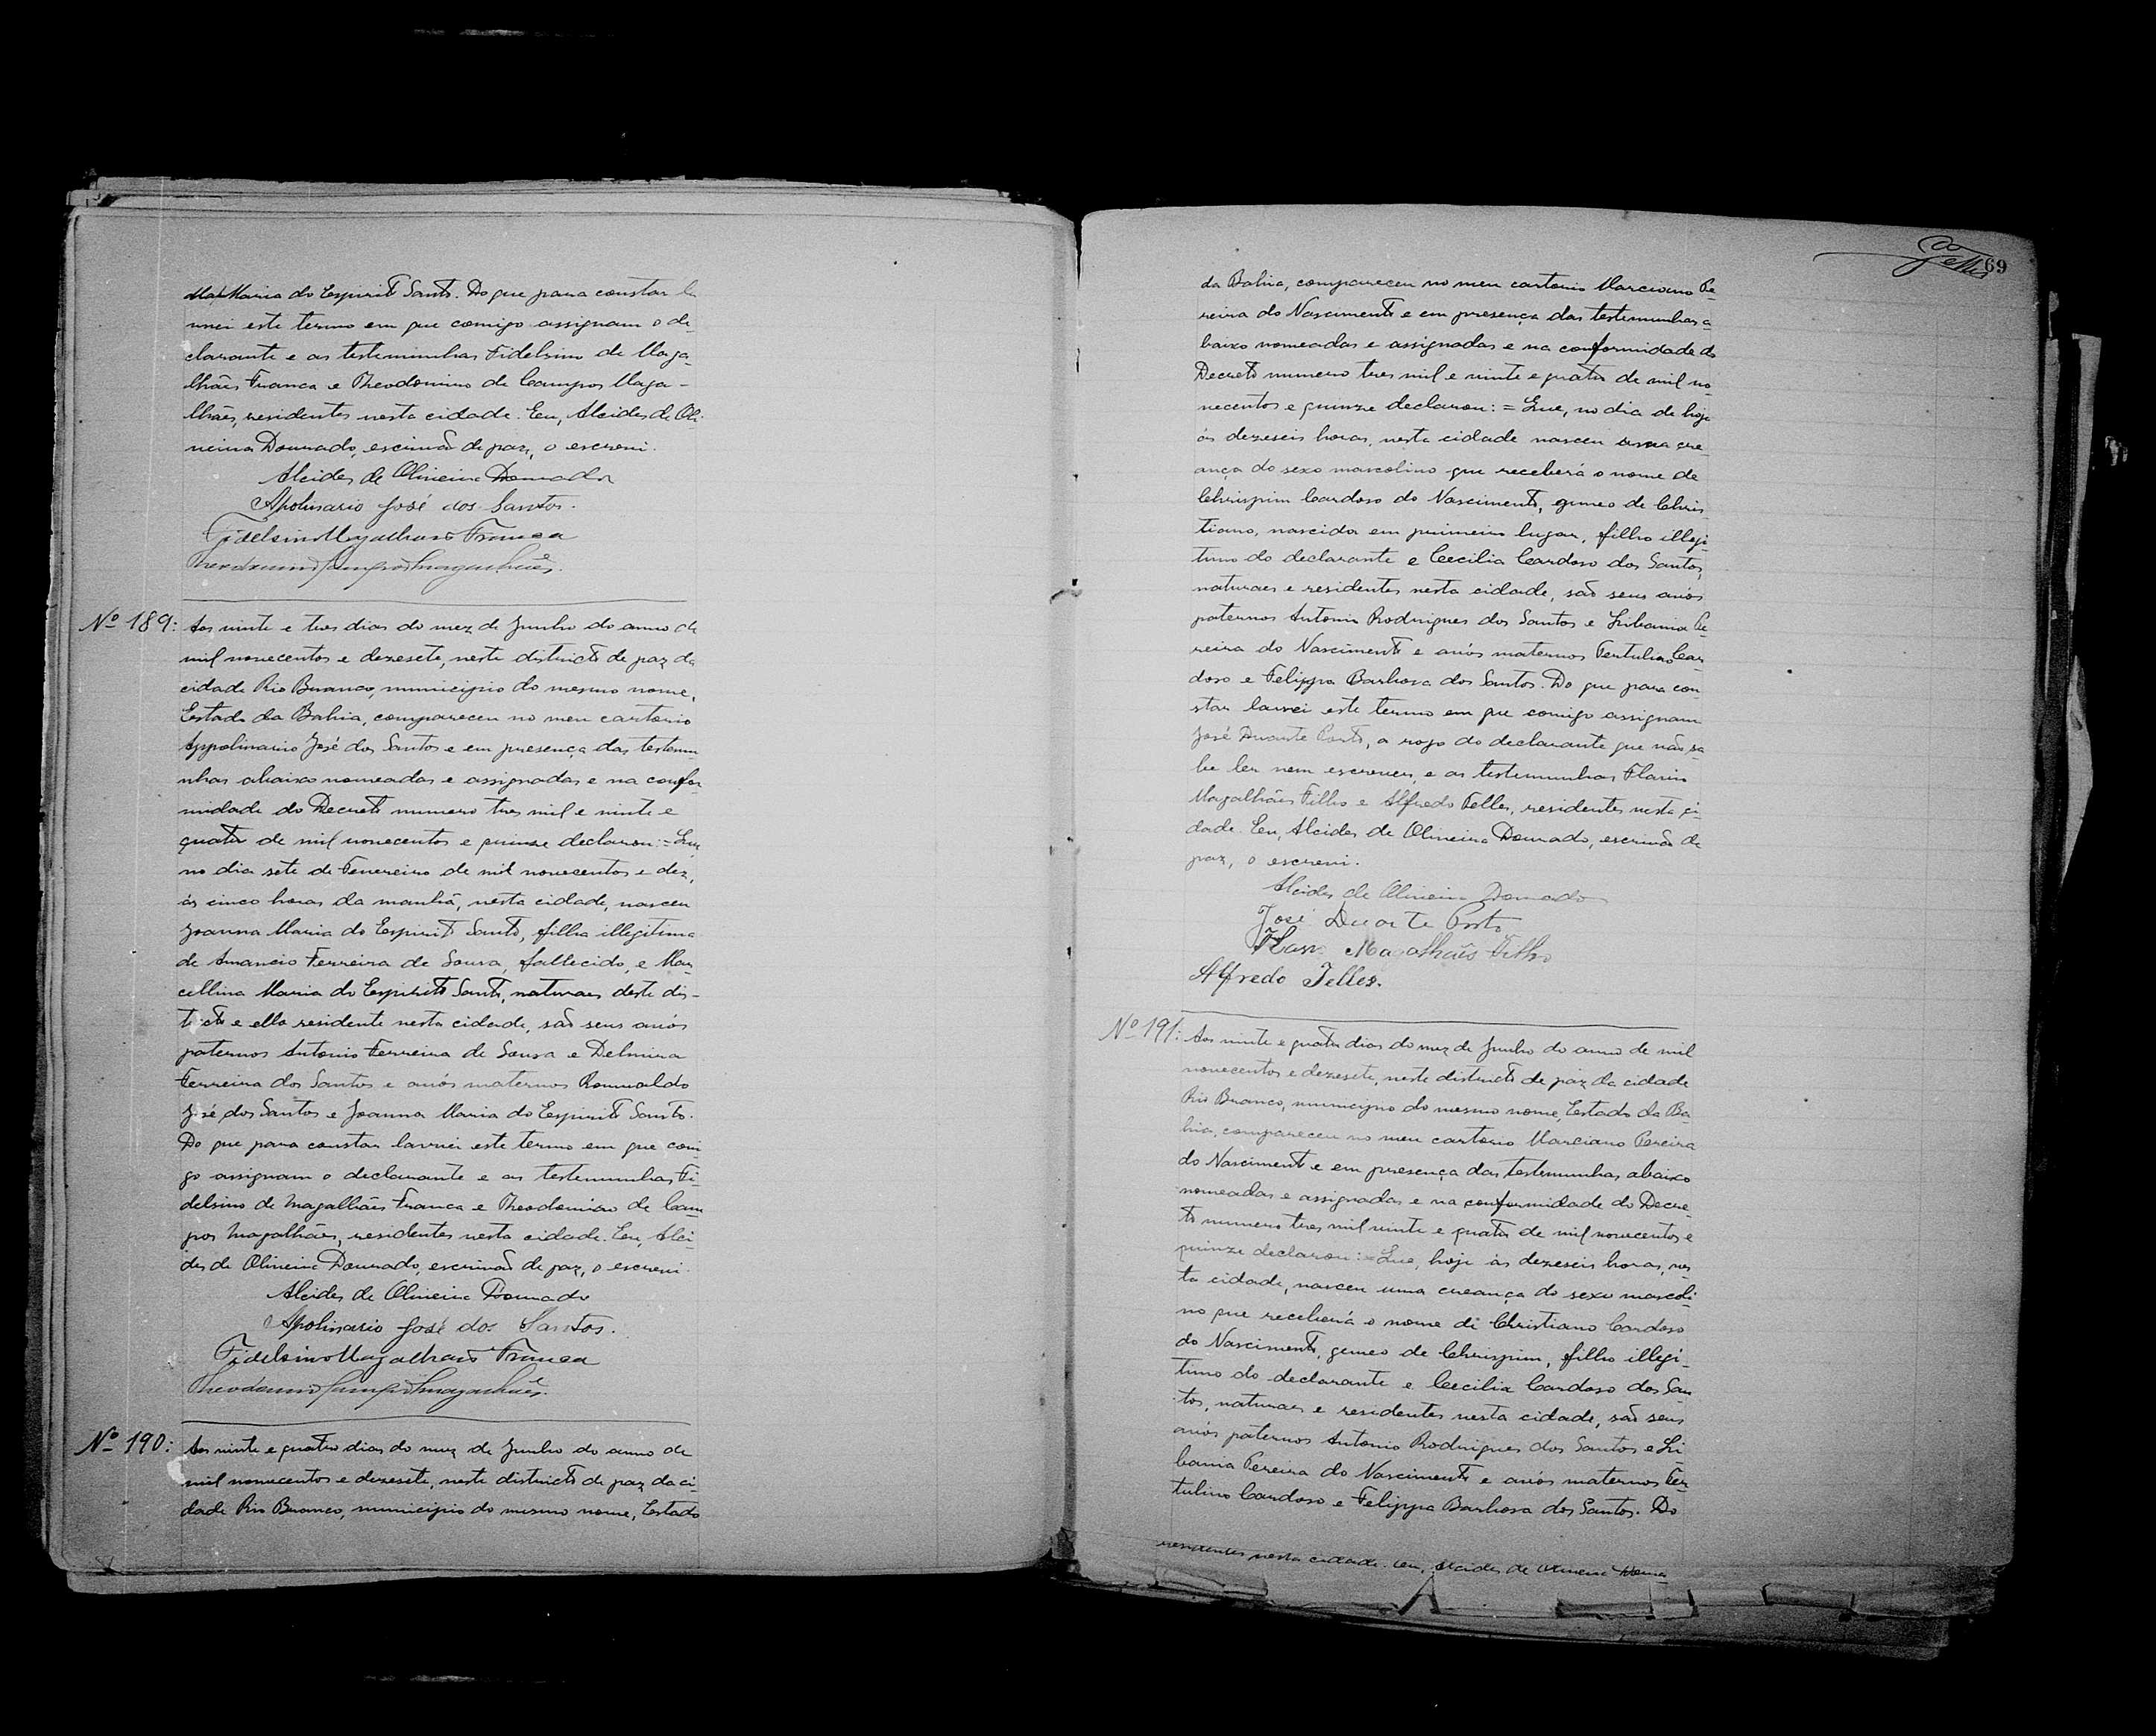 Maria do Espirito Santo. Do que para constar la
vrei este termo em que comigo assignam o de-
clarante e as testemunhas Fidelsino de Maga-
lhães Franca e Theodomiro de Campos Maga-
lhães, residentes nesta cidade. Eu, Alcides de Oli-
veira Dourado, escrivão de paz, o escrevi.
Alcides de Oliveira Dourado
Apolinario José dos Santos.
Fidelsino Magalhães Franca
Theodomiro Campos Magalhães.
Nº 189: Aos vinte e tres dias do mez de Junho do anno de
mil novecentos e dezesete, neste districto de paz da
cidade Rio Branco, municipio do mesmo nome,
Estado da Bahia, compareceu no meu cartorio
Appolinario José dos Santos e em presença das testemu
nhas abaixo nomeadas e assignadas e na confor
midade do Decreto numero tres mil e vinte e
quatro de mil novecentos e quinze declarou: = Que,
no dia sete de Fevereiro de mil novecentos e dez,
ás cinco horas da manhã, nesta cidade, nasceu
Joanna Maria do Espirito Santo, filha illegitima
de Amancio Ferreira de Sousa, fallecido, e Mar
cellina Maria do Espirito Santo, naturaes deste dis-
tricto e ella residente nesta cidade, são seus avós
paternos Antonio Ferreira de Sousa e Delmira
Ferreira dos Santos e avós maternos Romualdo
José dos Santos e Joanna Maria do Espirito Santo.
Do que para constar lavrei este termo em que comi
go assignam o declarante e as testemunhas Fi-
delsino de Magalhães Franca e Theodomiro de Cam
pos Magalhães, residentes nesta cidade. Eu, Alci-
des de Oliveira Dourado, escrivão de paz, o escrevi.
Alcides de Oliveira Dourado
Apolinario José dos Santos.
Fidelsino Magalhães Franca
Theodomiro Campos Magalhães.
Nº 190: Aos vinte e quatro dias do mez de Junho do anno de
mil novecentos e dezesete, neste districto de paz da ci-
dade Rio Branco, municipio do mesmo nome, Estado
69
da Bahia, compareceu no meu cartorio Marciano Pe-
reira do Nascimento e em presença das testemunhas a
baixo nomeadas e assignadas e na conformidade do
Decreto numero tres mil e vinte e quatro de mil no
vecentos e quinze declarou: = Que, no dia de hoje
ás dezeseis horas, nesta cidade nasceu uma cre
ança do sexo mascolino que receberá o nome de
Chrispim Cardoso do Nascimento, gemeo de Chris
tiano, nascido em primeiro lugar, filho illegi-
timo do declarante e Cecilia Cardoso dos Santos,
naturaes e residentes nesta cidade, são seus avós
paternos Antonio Rodrigues dos Santos e Libania Pe
reira do Nascimento e avós maternos Tertulino Car
doso e Felippa Barbosa dos Santos. Do que para con
star lavrei este termo em que comigo assignam
José Duarte Porto, a rogo do declarante que não sa
be ler nem escrever, e as testemunhas Flavio
Magalhães Filho e Alfredo Telles, residentes nesta ci-
dade. Eu, Alcides de Oliveira Dourado, escrivão de
paz, o escrevi.
Alcides de Oliveira Dourado
José Duarte Porto
Flavio Magalhães Filho
Alfredo Telles.
Nº 191: Aos vinte e quatro dias do mez de Junho do anno de mil
novecentos e dezesete, neste districto de paz da cidade
Rio Branco, municipio do mesmo nome, Estado da Ba-
hia, compareceu no meu cartorio Marciano Pereira
do Nascimento e em presença das testemunhas abaixo
nomeadas e assignadas e na conformidade do Decre-
to numero tres mil vinte e quatro de mil novecentos e
quinze declarou: = Que, hoje ás dezeseis horas, nes
ta cidade, nasceu uma creança do sexo mascoli-
no que receberá o nome de Christiano Cardoso
do Nascimento, gemeo de Chrispim, filho illegi-
timo do declarante e Cecilia Cardoso dos San
tos, naturaes e residentes nesta cidade, são seus
avós paternos Antonio Rodrigues dos Santos e Li-
bania Pereira do Nascimento e avós maternos Ter
tulino Cardoso e Felippa Barbosa dos Santos. Do
residentes nesta cidade. Eu, Alcides de Oliveira Doura